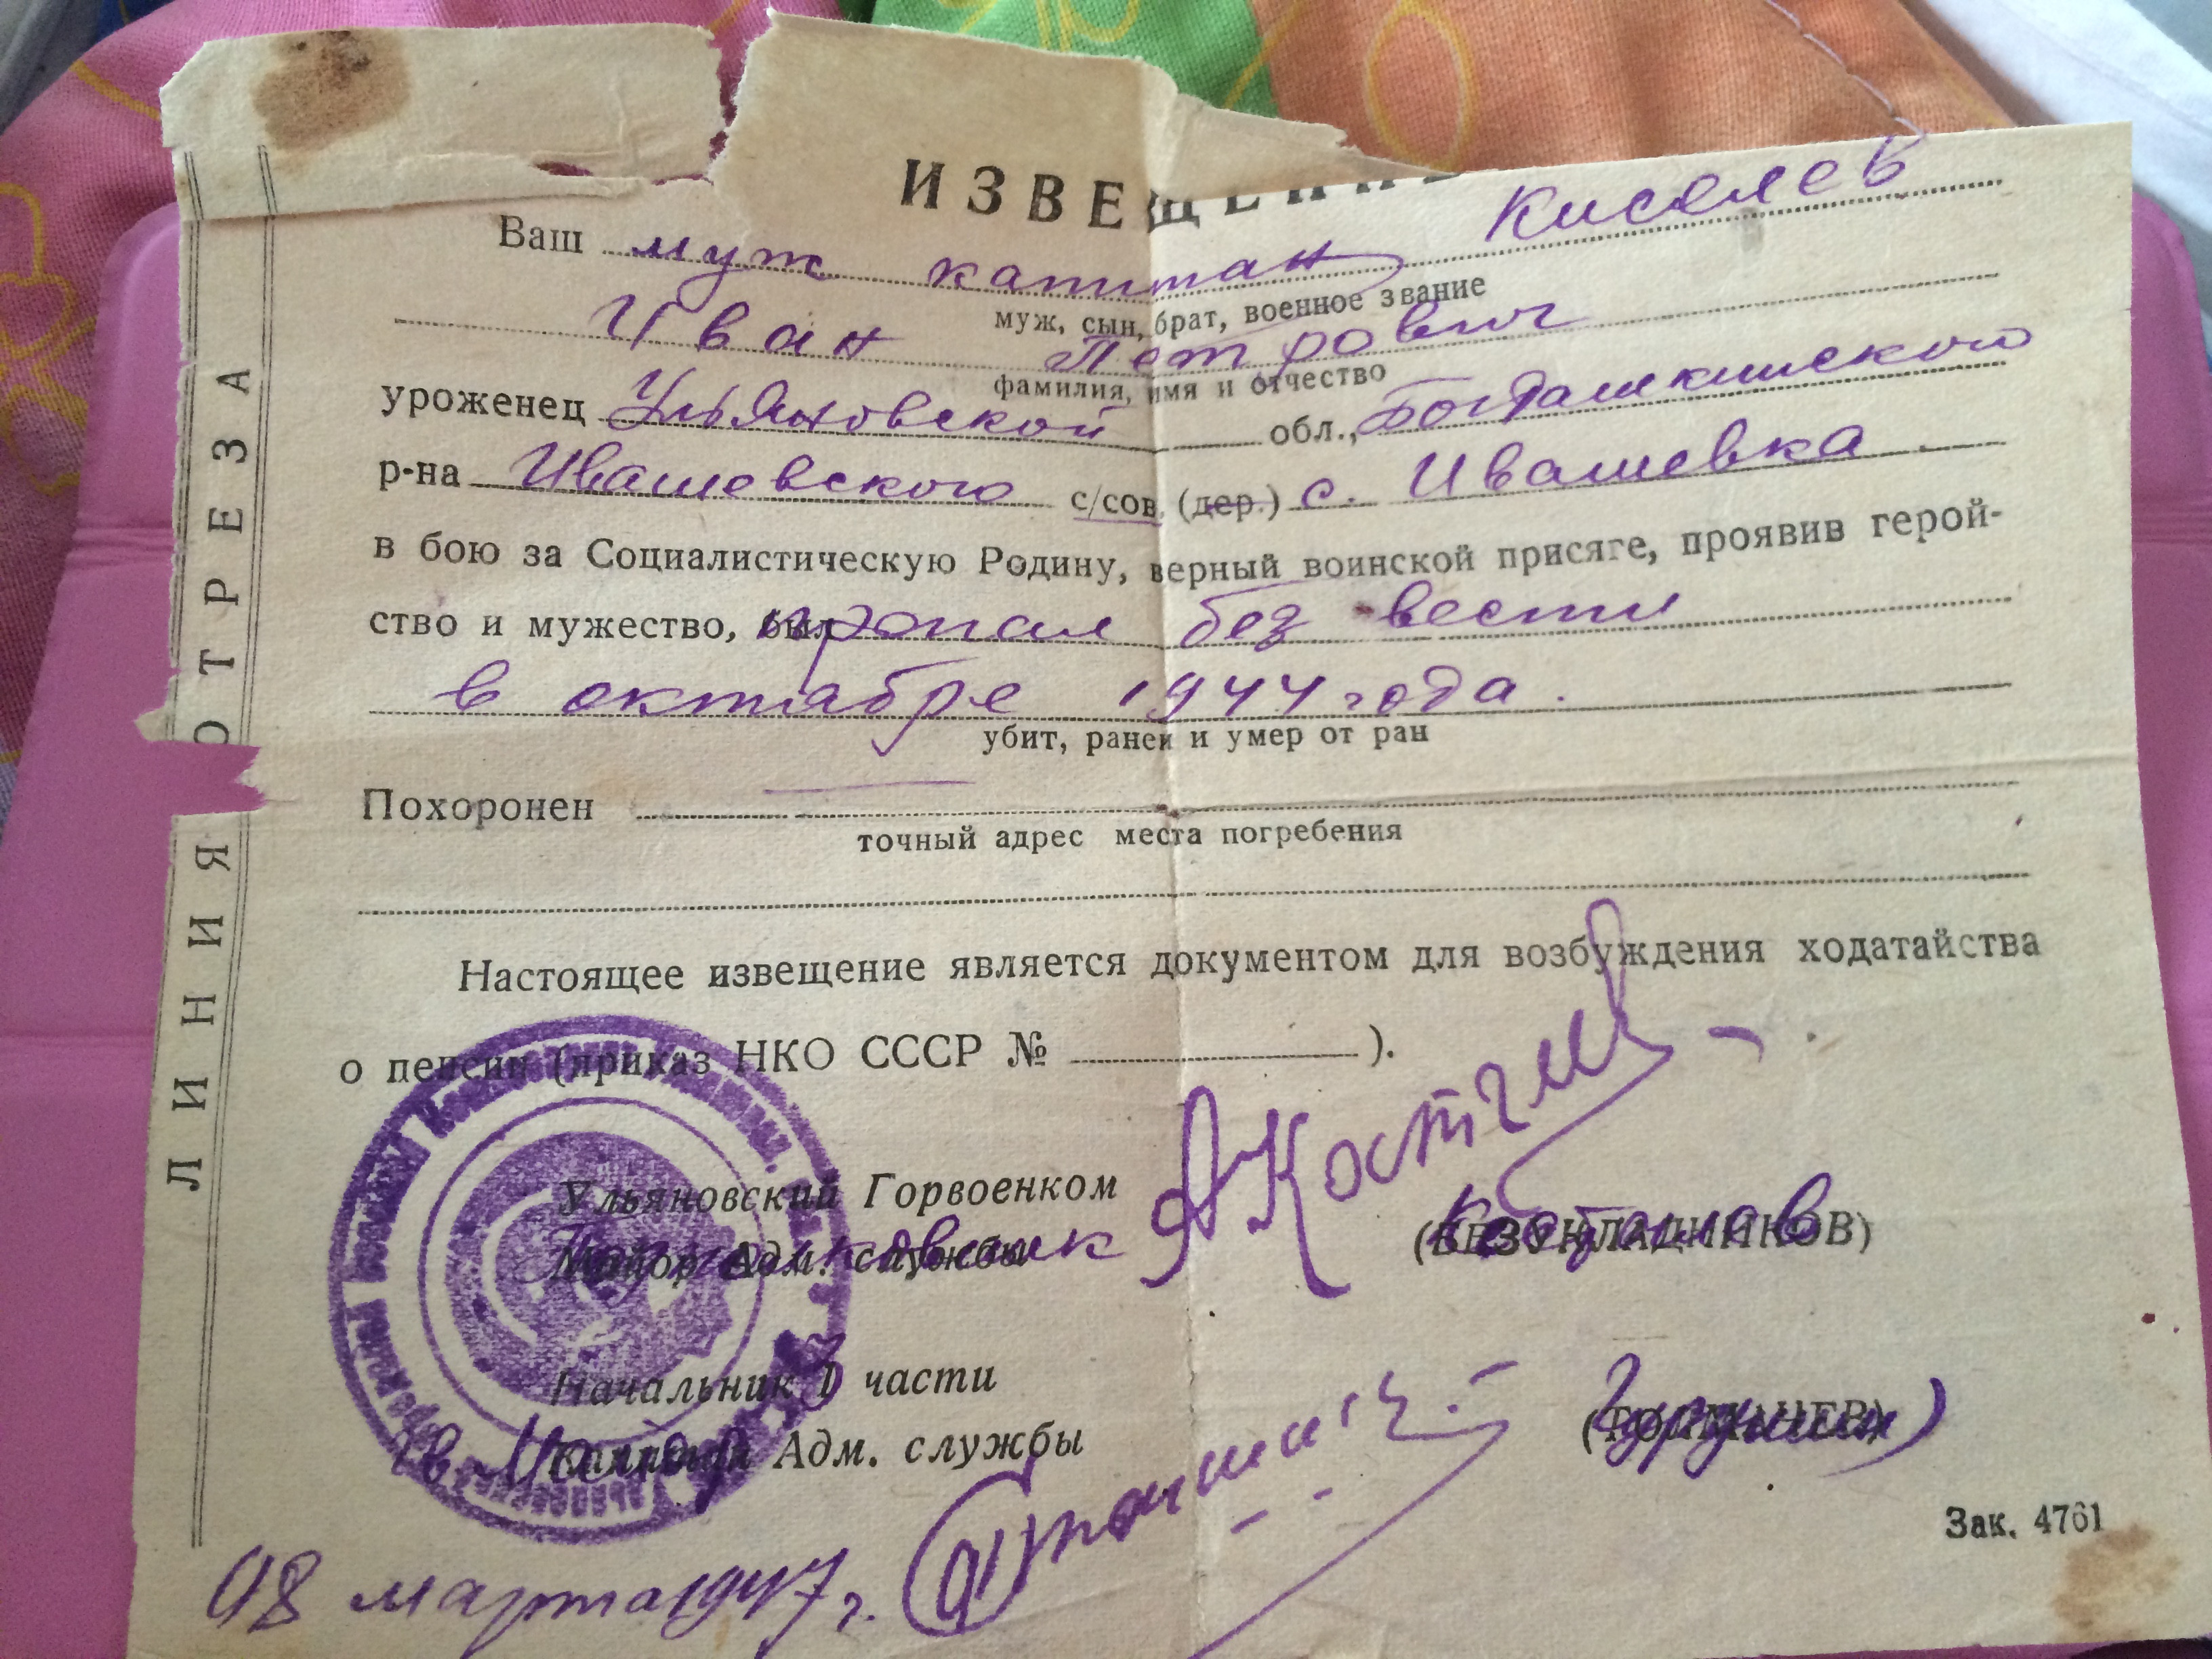 ИЗВЕЩЕНИЕ
Ваш муж капитан Киселев
муж, сын, брат, военное звание
Иван Петрович
фамилия, имя и отчество
уроженец Ульяновской обл., Богдашкинского
р-на Ивашевского с/сов. (дер.) с. Ивашевка
в бою за Социалистическую Родину, верный воинской присяге, проявив герой-
ство и мужество, был пропал без вести
в октябре 1944 года.
убит, ранен и умер от ран
Похоронен
точный адрес места погребения
Настоящее извещение является документом для возбуждения ходатайства
о пенсии (приказ НКО СССР № ).
Ульяновский Горвоенком
Майор Адм. службы
Подполковник
(БЕЗУКЛАДНИКОВ)
Начальник 1 части
Капитан Адм. службы
Гв. Майор
18 марта 1947 г.
Зак. 4761
ЛИНИЯ ОТРЕЗА